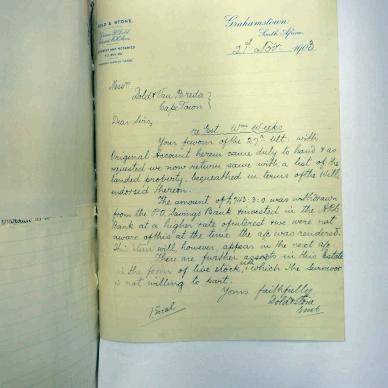 GOLD & STONE.
Grahamstown,
South Africa.
21st Nov 1903
Messrs
Dold & Van Breda
Cape Town
Dear Sirs,
re Est. Wm Weeks
Your favour of the 27th ult. with
Original Account herein came duly to hand & as
requested we now return same with a list of the
landed property, bequeathed in terms of the Will,
endorsed thereon.
The amount of £ was withdrawn
from the P.O. Savings Bank & invested in the
Bank at a higher rate of interest & we were not
aware of this at the time the a/c was rendered.
This item will, however, appear in the next a/c.
There are further assets in this Estate
in the form of live stock, with which the Survivor
is not willing to part.
Yours faithfully
Dold & Stone
1 Encl.